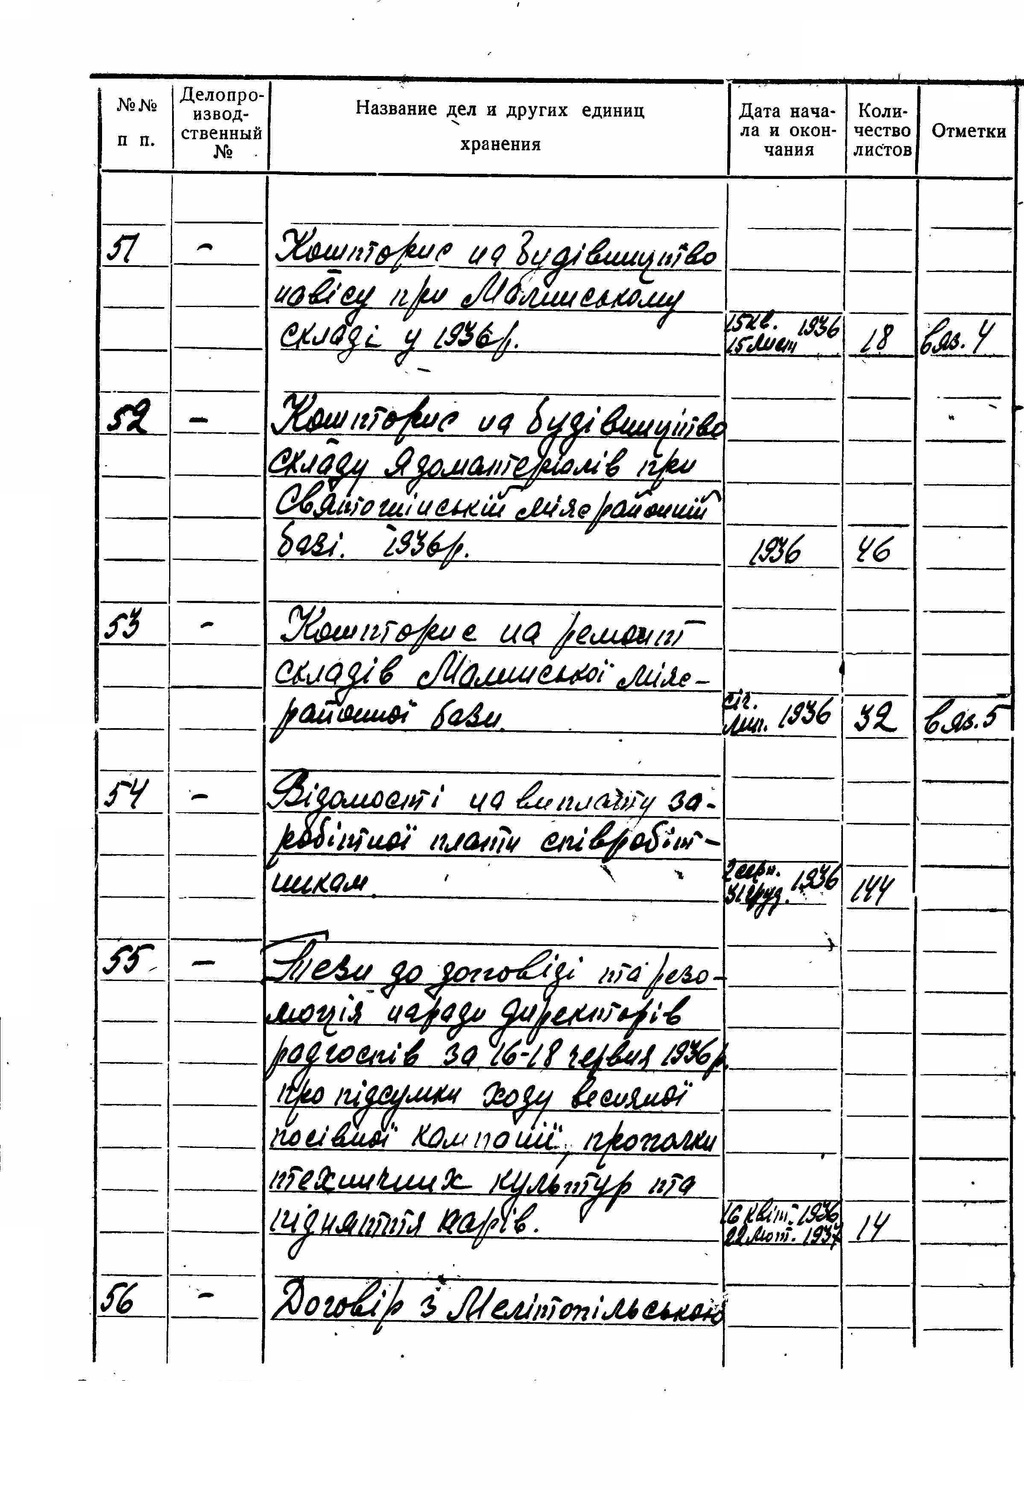 №№ п п.
Делопроизводственный №
Название дел и других единиц хранения
Дата начала и окончания
Количество листов
Отметки
51 - Кошторис на будівництво
навісу при Малинському
складі у 1936р. 15 кв. 1936 15 лист 18 вяз. 4
52 - Кошторис на будівництво "
складу ядоматеріалів при
Святошинській міжрайонній
базі. 1936р. 1936 46
53 - Кошторис на ремонт
складів Малинської міжрайонної бази. січ. лип. 1936 32 вяз. 5
54 - Відомості на виплату за-
робітної плати співробіт-
никам. 2 серп. 31 груд. 1936 144
55 - Тези до доповіді та резо-
люція наради директорів
радгоспів за 16-18 червня 1936р.
про підсумки ходу весняної
посівної кампанії, прополки
технічних культур та
підняття парів. 16 квіт. 1936 22 лют. 1937 14
56 - Договір з Мелітопільською